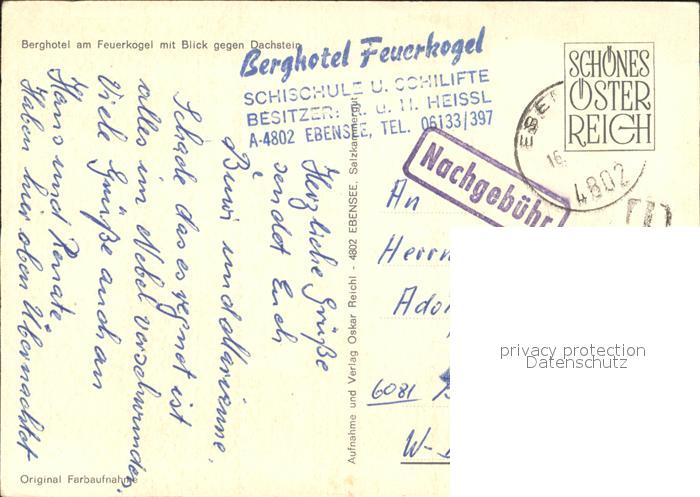 Berghotel am Feuerkogel mit Blick gegen Dachstein
Berghotel Feuerkogel
SCHISCHULE U. SCHILIFTE
BESITZER: u. H. HEISSL
A-4802 EBENSEE, TEL. 06133/397
SCHÖNES
ÖSTER
REICH
EBEN
16.
4802
Nachgebühr
Herzliche Grüße
sendet Euch
und
Schade das es regnet ist
alles im Nebel verschwunden.
Viele Grüße auch an
Hans und Renate
Haben hier oben Übernachtet
An
Herrn
Ado
6081
W-
Aufnahme und Verlag Oskar Reichl - 4802 EBENSEE, Salzkammergut
privacy protection
Datenschutz
Original Farbaufnahme